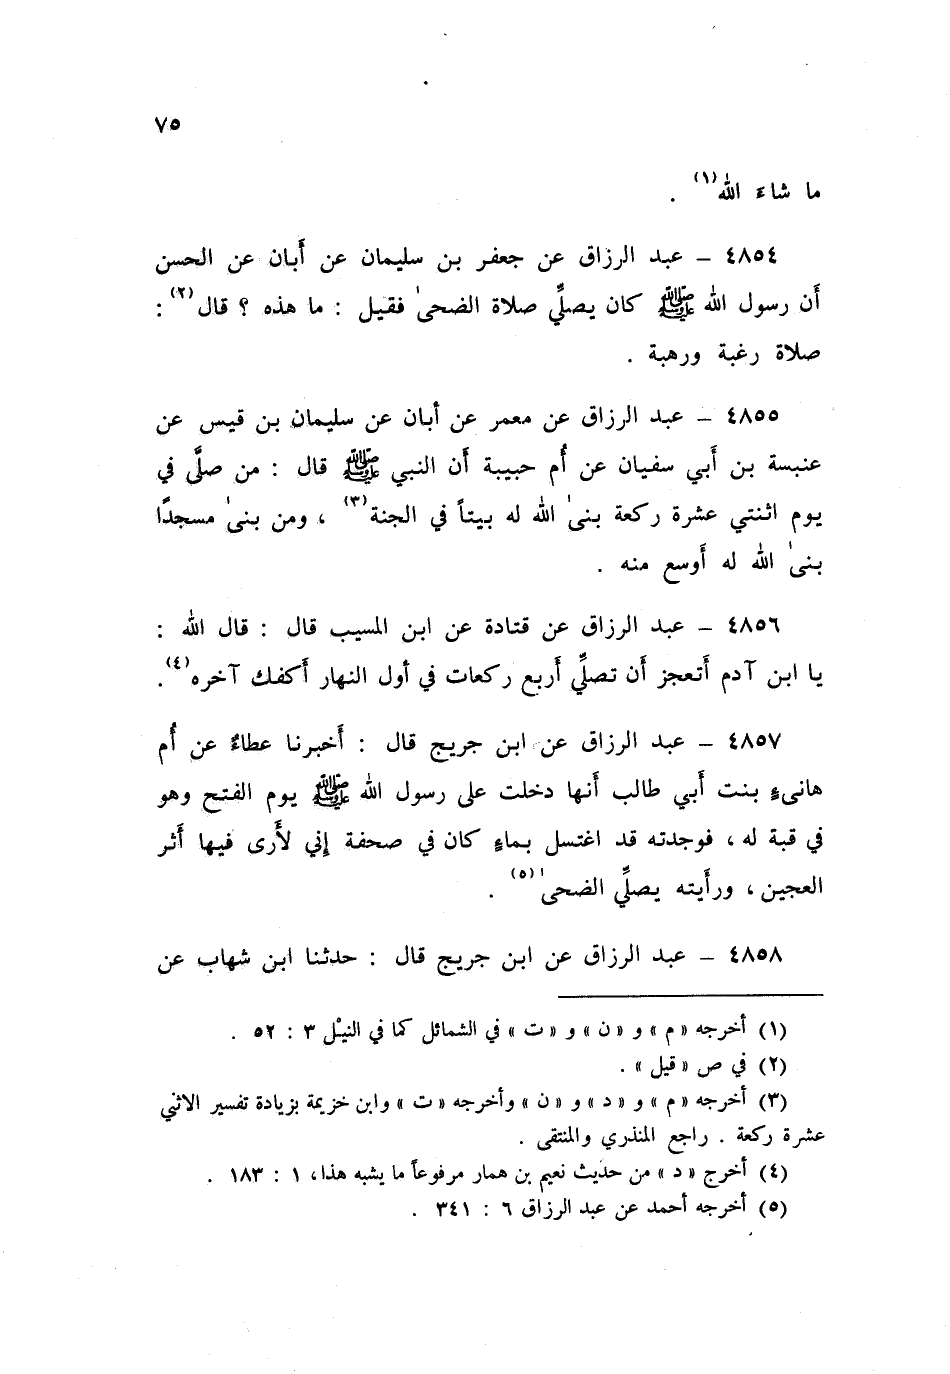 ٧٥
ما شاء الله(١) .
٤٨٥٤ – عبد الرزاق عن جعفر بن سليمان عن أَبان عن الحسن
أَن رسول الله ﷺ كان يصلِّي صلاة الضحىٰ فقيل : ما هذه ؟ قال(٢) :
صلاة رغبة ورهبة .
٤٨٥٥ – عبد الرزاق عن معمر عن أبان عن سليمان بن قيس عن
عنبسة بن أَبي سفيان عن أُم حبيبة أَن النبي ﷺ قال : من صلَّى في
يوم اثنتي عشرة ركعة بنىٰ الله له بيتاً في الجنة(٣) ، ومن بنىٰ مسجدًا
بنىٰ الله له أَوسع منه .
٤٨٥٦ – عبد الرزاق عن قتادة عن ابن المسيب قال : قال الله :
يا ابن آدم أَتعجز أَن تصلِّي أَربع ركعات في أول النهار أَكفك آخره(٤).
٤٨٥٧ – عبد الرزاق عن ابن جريج قال : أَخبرنا عطاءٌ عن أُم
هانىءٍ بنت أَبي طالب أَنها دخلت على رسول الله ﷺ يوم الفتح وهو
في قبة له ، فوجدته قد اغتسل بماءٍ كان في صحفة إِني لأَرى فيها أَثر
العجين ، ورأَيته يصلِّي الضحىٰ(٥) .
٤٨٥٨ – عبد الرزاق عن ابن جريج قال : حدثنا ابن شهاب عن
(١) أخرجه « م » و « ن » و « ت » في الشمائل كما في النيْل ٣ : ٥٢ .
(٢) في ص « قيل » .
(٣) أخرجه « م » و « د » و « ن » وأخرجه « ت » وابن خزيمة بزيادة تفسير الاثني
عشرة ركعة . راجع المنذري والمنتقى .
(٤) أخرج « د » من حديث نعيم بن همار مرفوعاً ما يشبه هذا، ١ : ١٨٣ .
(٥) أخرجه أحمد عن عبد الرزاق ٦ : ٣٤١ .